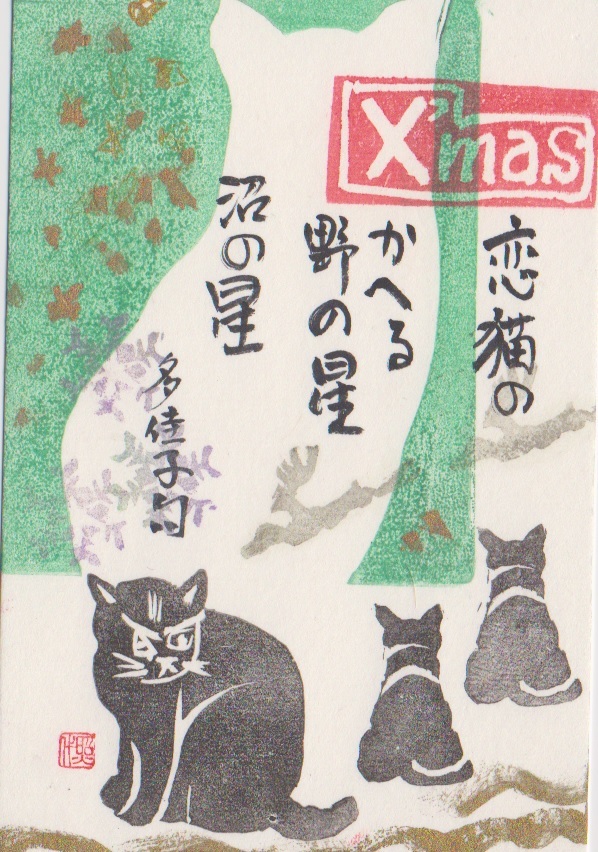 X'mas
恋猫の
かへる
野の星
沼の星
多佳子句